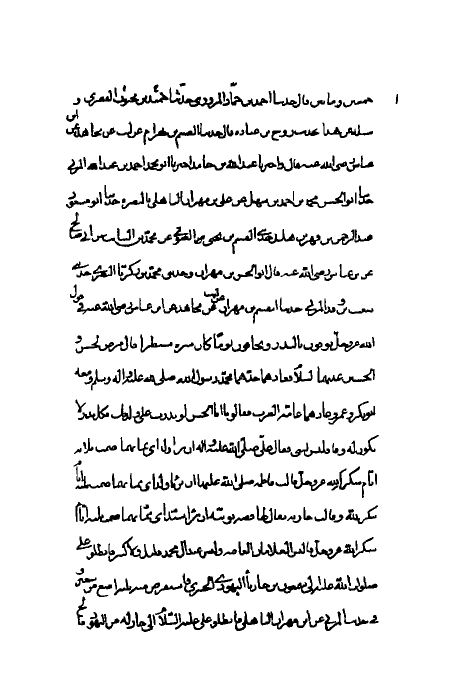 خمسين ومائتين قال حدثنا احمد بن حماد المروزي حدثنا محبوب البصري و
سأله عن هذا الحديث روح بن عبادة قال حدثنا القسم بن بهرام عن ليث عن مجاهد عن ابن
عباس رضي الله عنه قال واخبرنا عبد الله بن حامد اخبرنا ابو محمد احمد بن عبد الله المزني
حدثنا ابو الحسن محمد بن احمد بن سهل بن علي بن مهران الباهلي بالبصرة حدثنا ابو مسعود
عبد الرحمن بن فهر بن هلال حدثني القسم بن يحيى عن محمد بن السائب عن ابي صالح
عن ابن عباس رضي الله عنه قال ابو الحسن بن مهران وحدثني محمد بن زكريا البصري حدثني
شعيب بن واقد المزني حدثنا القسم بن مهران عن ليث عن مجاهد عن ابن عباس رضي الله عنه في قول
الله عز وجل يوفون بالنذر ويخافون يوما كان شره مستطيرا قال مرض الحسن و
الحسين عليهما السلام فعادهما جدهما محمد رسول الله صلى الله عليه واله وسلم ومعه
ابو بكر وعمر وعادهما عامة العرب فقالوا يا ابا الحسن لو نذرت على ولديك وكل نذر لا
يكون له وفاء فليس بشي فقال علي صلى الله عليه واله ان برا ولداي مما بهما صمت ثلاثة
ايام شكرا لله عز وجل وقالت فاطمة صلى الله عليها ان برا ولداي مما بهما صمت ثلاثة ايام
شكرا لله وقالت جارية يقال لها فضة نوبية ان برا سيداي مما بهما صمت ثلاثة ايام
شكرا لله عز وجل فالبس الغلامان العافية وليس عند ال محمد قليل ولا كثير فانطلق علي
صلوات الله عليه الى شمعون بن حاريا اليهودي الخيبري فاستقرض منه ثلثة اصع من شعير و
في حديث المزني عن ابن مهران الباهلي فانطلق علي عليه السلام الى جار له من اليهود يعالج